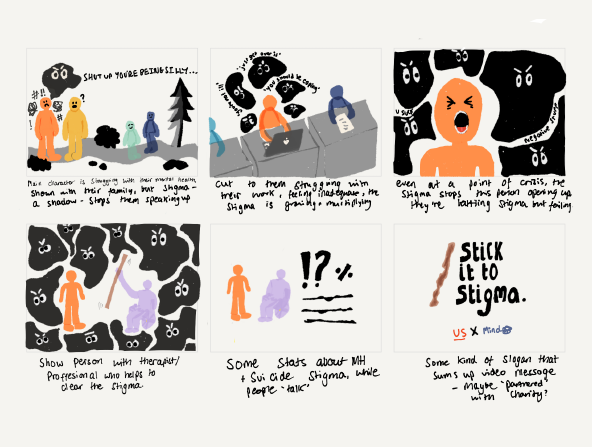 SHUT UP YOU'RE BEING SILLY...
#!!
?
#
!
Main character is struggling with their mental health,
shown with their family, but Stigma -
a shadow - stops them speaking up
"just get over it"
"you should be coping"
Cut to them struggling with
their work, feeling inadequate, the
Stigma is growing + multiplying
U SUCK
even at a point of crisis, the
Stigma stops this person opening up
they're battling Stigma but failing
Show person with therapist/
Proffesional who helps to
clear the Stigma
!? %
Some stats about MH
+ Suicide Stigma, while
people "talk"
Stick
it to
Stigma.
US X Mind
Some kind of slogan that
sums up video message
- Maybe "partnered"
with Charity?